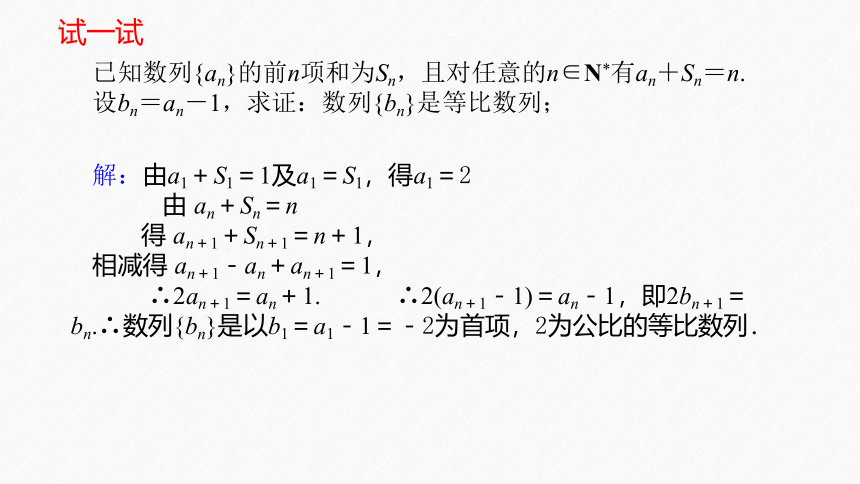 试一试
已知数列{an}的前n项和为Sn，且对任意的n∈N*有an＋Sn＝n.
设bn＝an－1，求证：数列{bn}是等比数列；
解：由a1＋S1＝1及a1＝S1，得a1＝2
由 an＋Sn＝n
得 an＋1＋Sn＋1＝n＋1，
相减得 an＋1－an＋an＋1＝1，
∴2an＋1＝an＋1. ∴2(an＋1－1)＝an－1，即2bn＋1＝
bn.∴数列{bn}是以b1＝a1－1＝－2为首项，2为公比的等比数列.